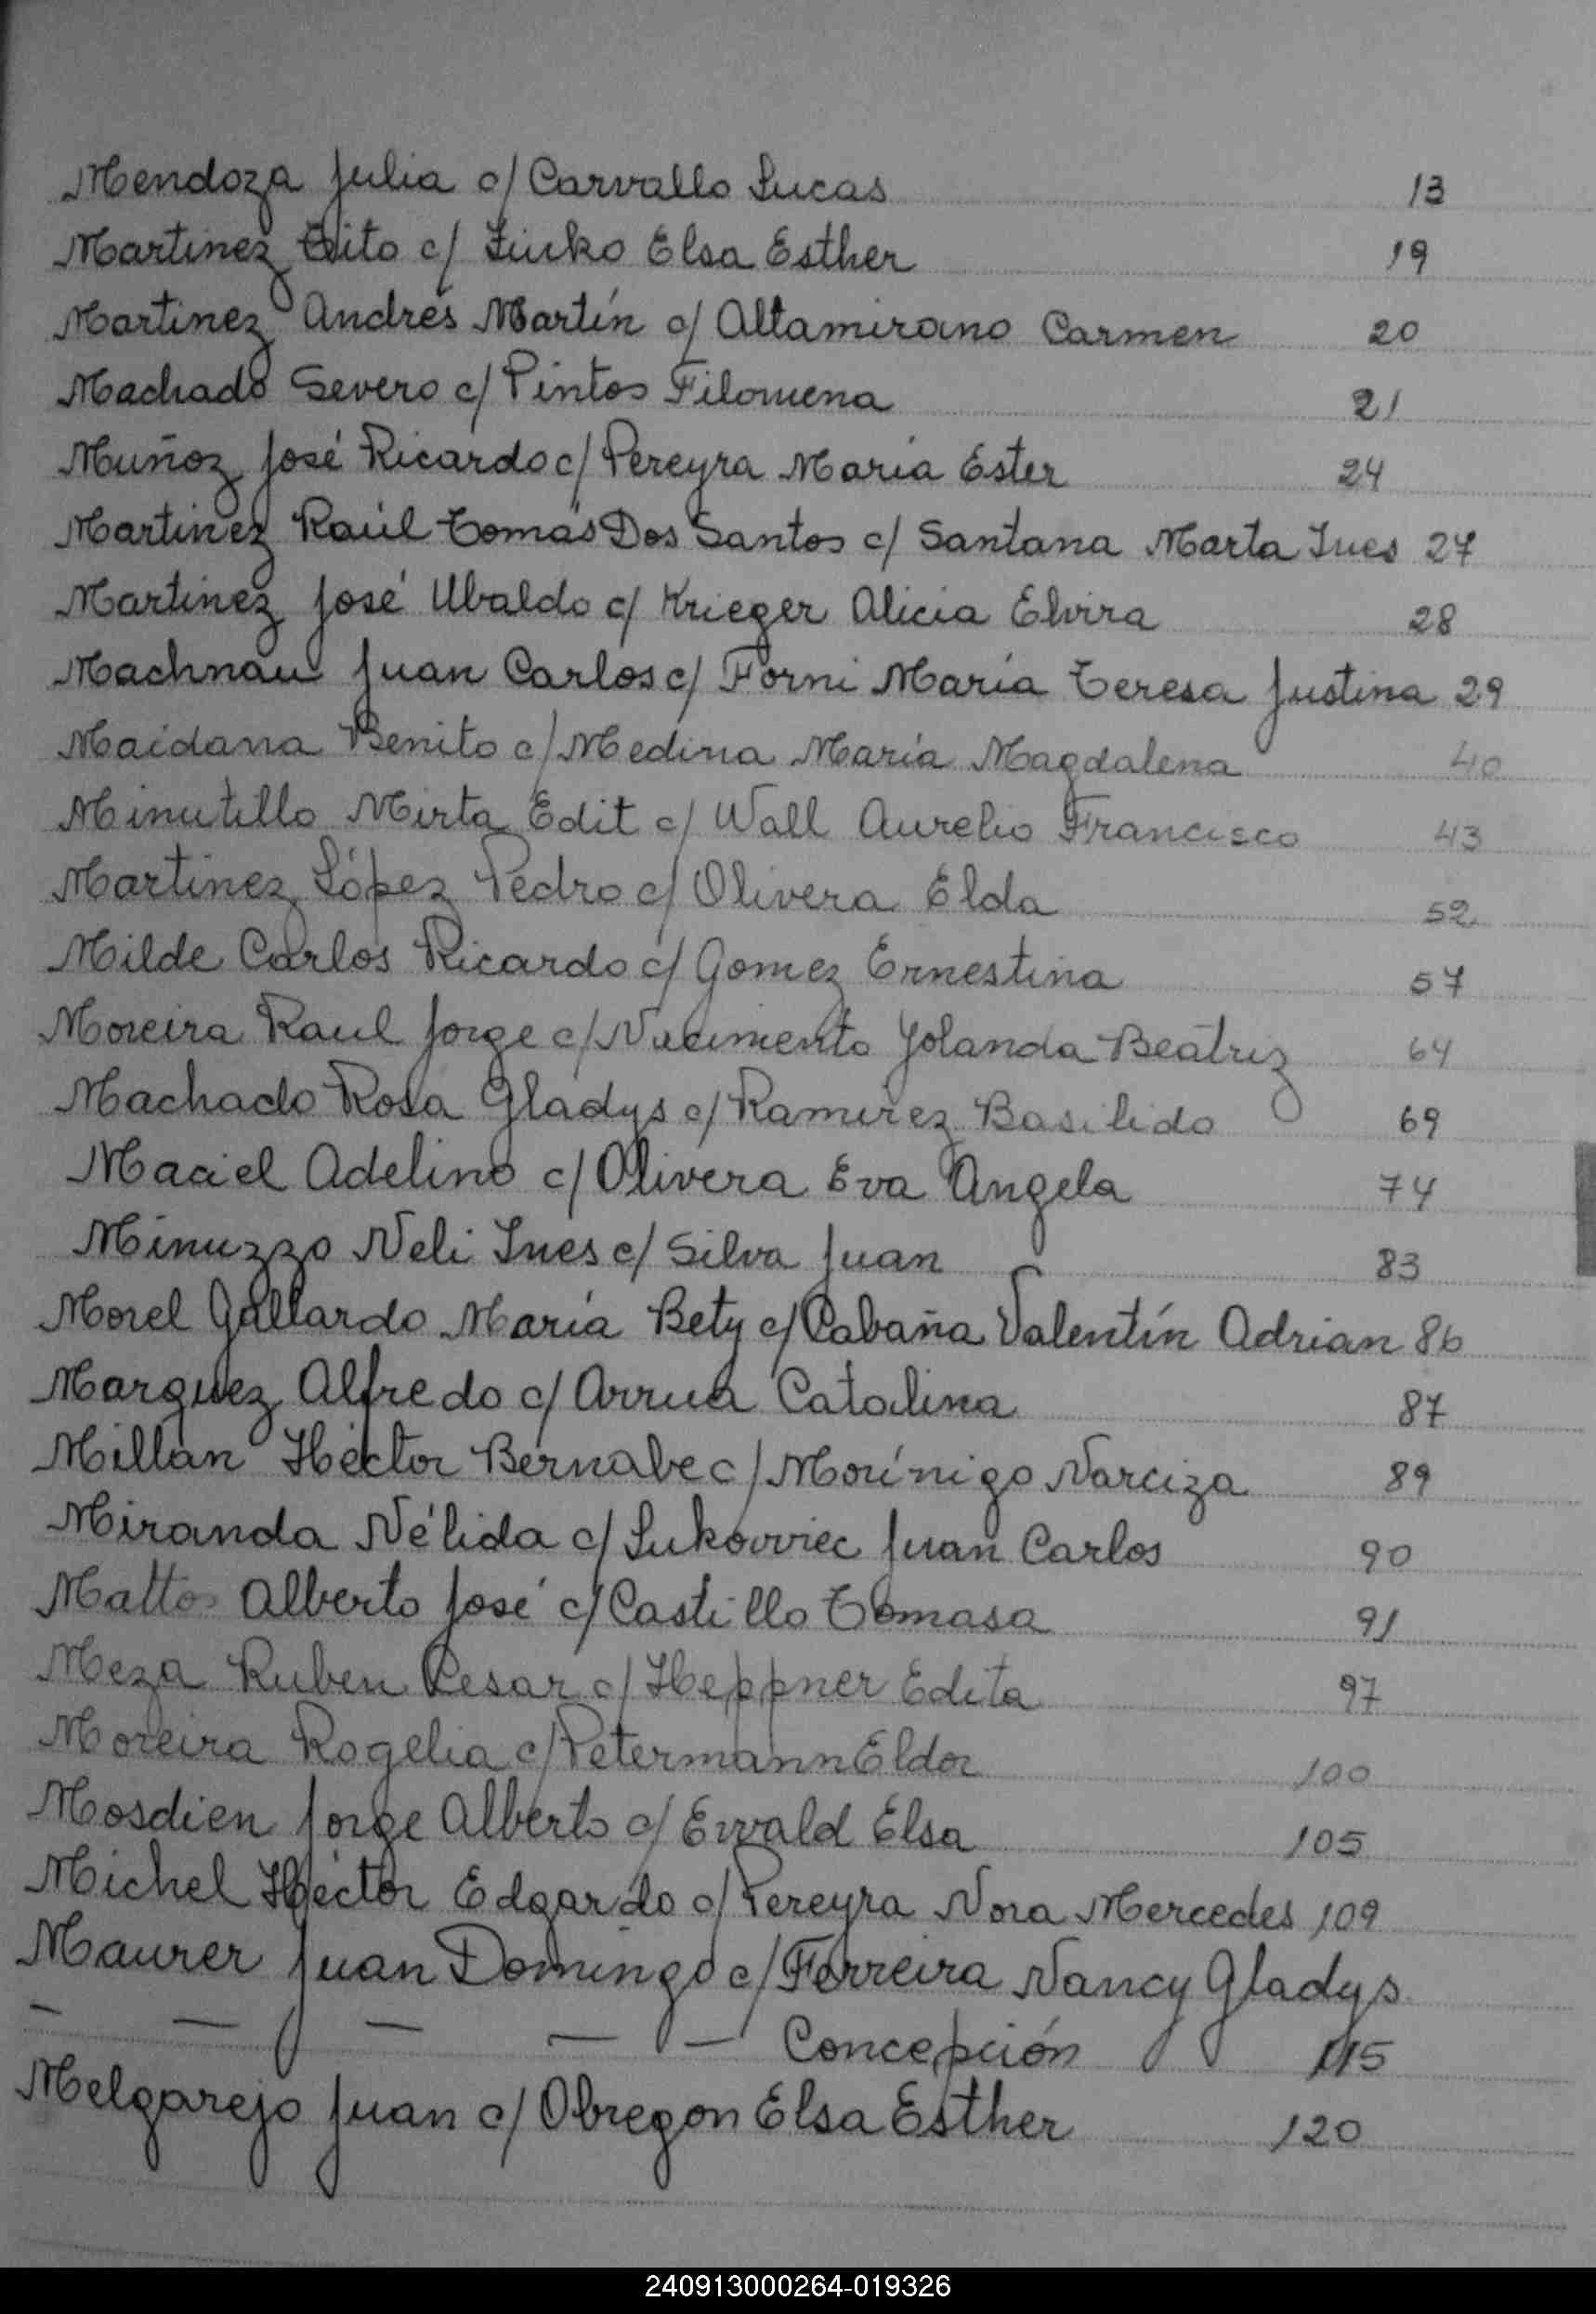 Mendoza Julia c/ Carvallo Lucas 13
Martinez Tito c/ Zinko Elsa Esther 19
Martinez Andrés Martín c/ Altamirano Carmen 20
Machado Severo c/ Pintos Filomena 21
Muñoz José Ricardo c/ Pereyra María Ester 24
Martinez Raúl Tomás Dos Santos c/ Santana Marta Ines 27
Martinez José Ubaldo c/ Krieger Alicia Elvira 28
Machnau Juan Carlos c/ Forni María Teresa Justina 29
Maidana Benito c/ Medina María Magdalena 40
Minutillo Mirta Edit c/ Wall Aurelio Francisco 43
Martinez López Pedro c/ Olivera Elda 52
Milde Carlos Ricardo c/ Gomez Ernestina 57
Moreira Raul Jorge c/ Yolanda Beatriz 64
Machado Rosa Gladys c/ Ramirez Basilido 69
Maciel Adelino c/ Olivera Eva Angela 74
Minuzzo Neli Ines c/ Silva Juan 83
Morel Gallardo María Bety c/ Cabaña Valentín Adrian 86
Marquez Alfredo c/ Arrua Catalina 87
Millan Héctor Bernabe c/ Morínigo Narciza 89
Miranda Nélida c/ Lukowiec Juan Carlos 90
Mattos Alberto José c/ Castillo Tomasa 91
Meza Ruben Cesar c/ Heppner Edita 97
Moreira Rogelia c/ Petermann Eldor 100
Mosdien Jorge Alberto c/ Ewald Elsa 105
Michel Héctor Edgardo c/ Pereyra Nora Mercedes 109
Maurer Juan Domingo c/ Ferreira Nancy Gladys
— — — — — Concepción 115
Melgarejo Juan c/ Obregon Elsa Esther 120
240913000264-019326